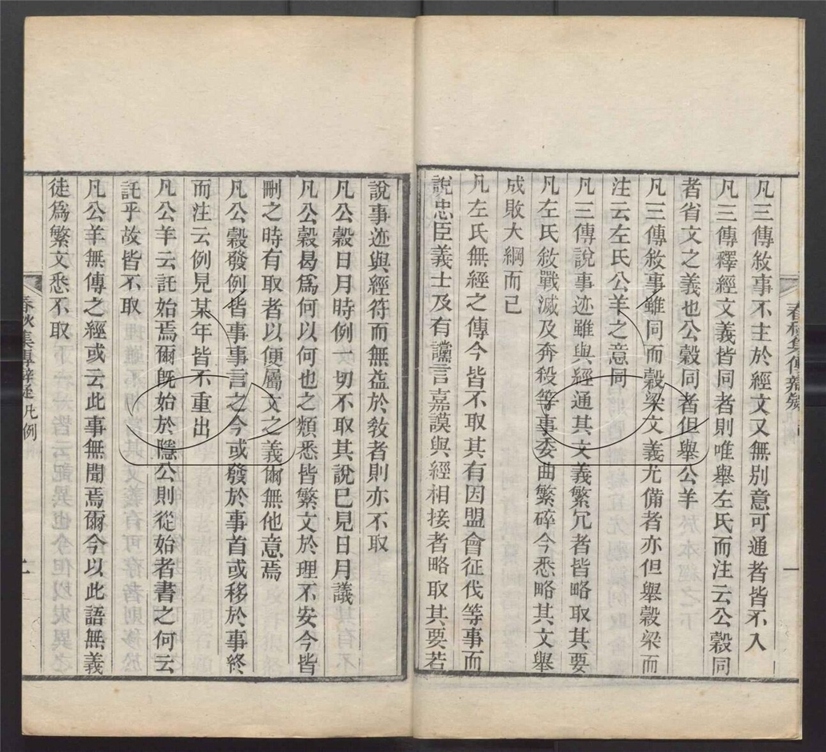 凡三傳敘事不主於經文又無別意可通者皆不入
凡三傳釋經文義皆同者則唯舉左氏而注云公穀同
者省文之義也公穀同者但舉公羊
凡三傳敘事雖同而穀梁文義尤備者亦但舉穀梁而
注云左氏公羊之意同
凡三傳說事迹雖與經通其文義繁冗者皆略取其要
凡左氏敘戰滅及奔殺等事委曲繁碎今悉略其文舉
成敗大綱而已
凡左氏無經之傳今皆不取其有因盟會征伐等事而
說忠臣義士及有讜言嘉謨與經相接者略取其要若
說事迹與經符而無益於教者則亦不取
凡公穀日月時例一切不取其說已見日月議
凡公穀曷爲何以何也之類悉皆繁文於理不安今皆
刪之時有取者以便屬文之義爾無他意焉
凡公穀發例皆事事言之今或發於事首或移於事終
而注云例見某年皆不重出
凡公羊云託始焉爾旣始於隱公則從始者書之何云
託乎故皆不取
凡公羊無傳之經或云此事無聞焉爾今以此語無義
徒爲繁文悉不取
春秋集傳辯疑凡例
二